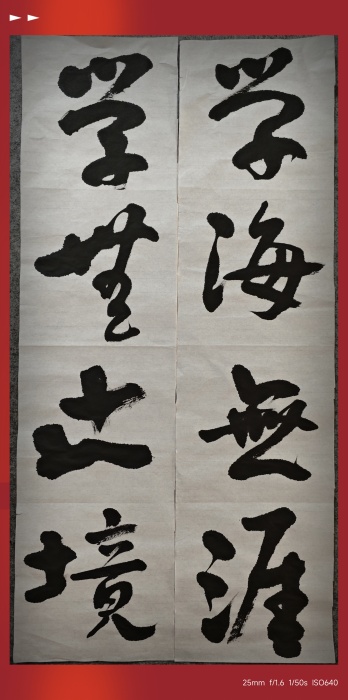 学海無涯
学無止境
25mm f/1.6 1/50s ISO640